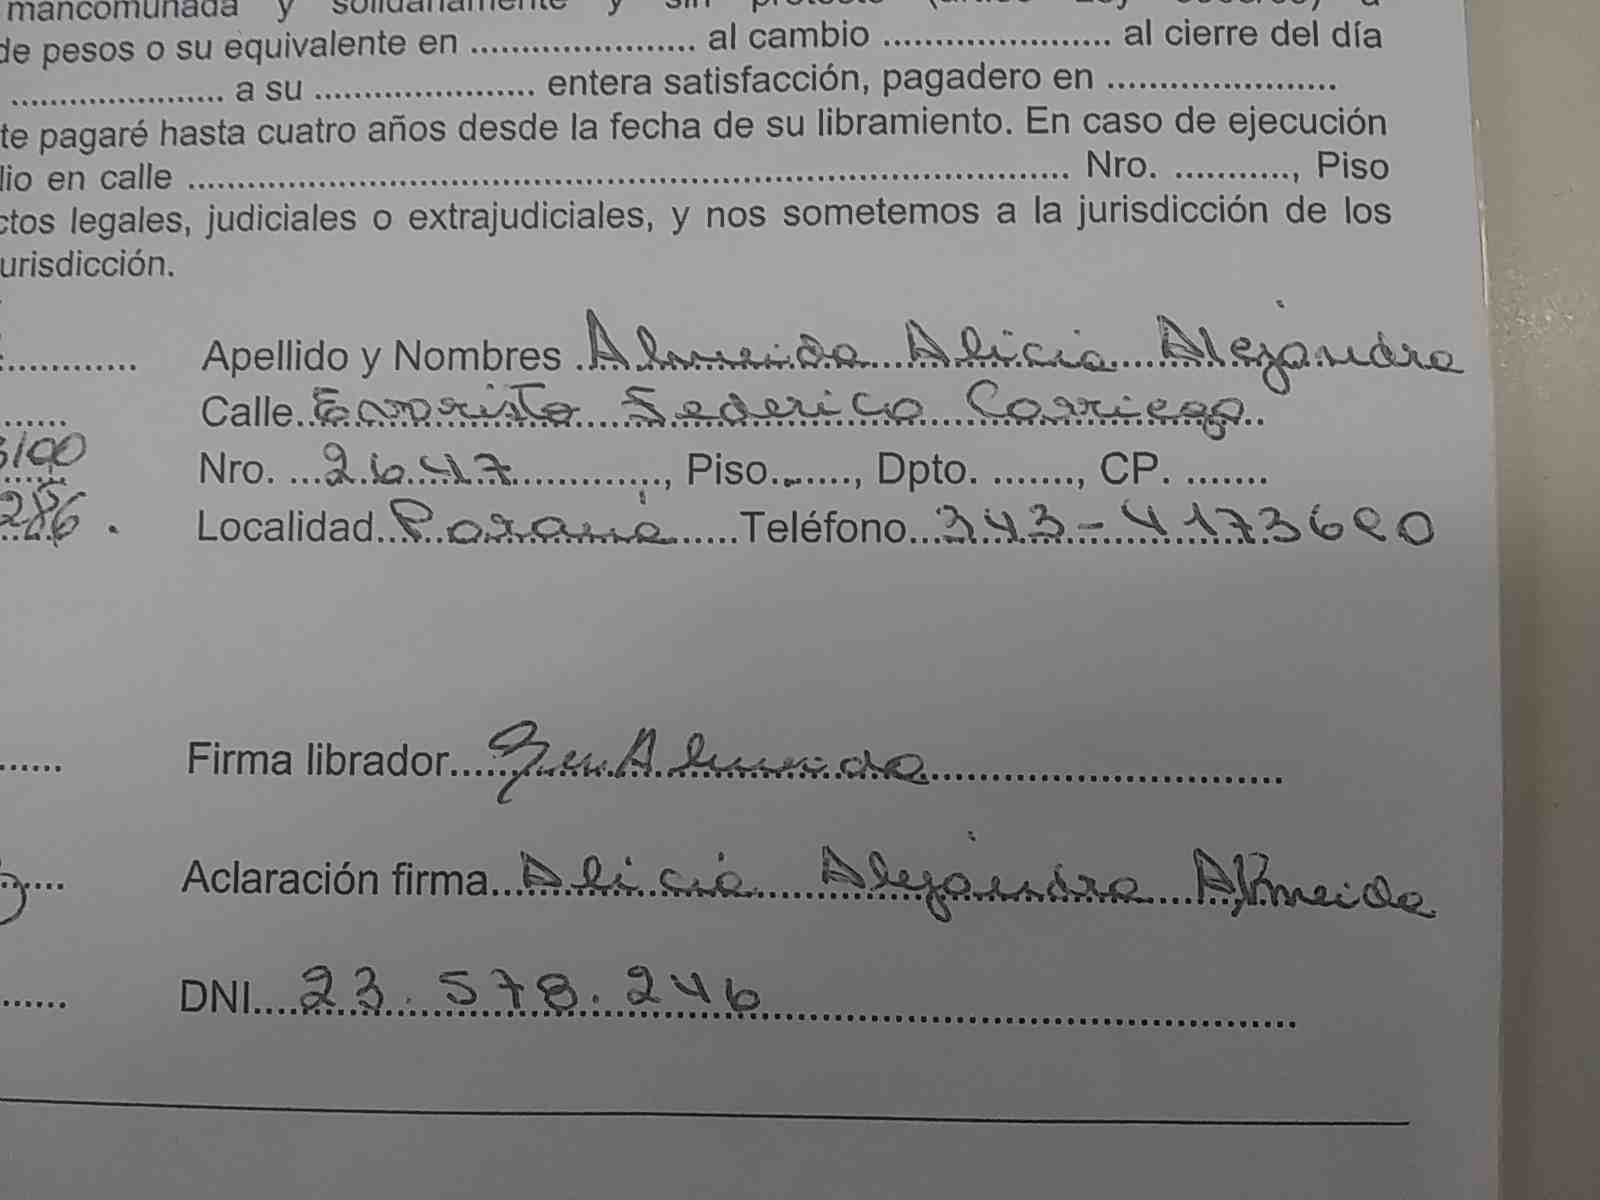 mancomunada y solidariamente y sin protesto
de pesos o su equivalente en ...................... al cambio ...................... al cierre del día
...................... a su ...................... entera satisfacción, pagadero en ......................
te pagaré hasta cuatro años desde la fecha de su libramiento. En caso de ejecución
lio en calle ...................................................................................... Nro. ..........., Piso
ctos legales, judiciales o extrajudiciales, y nos sometemos a la jurisdicción de los
urisdicción.
Apellido y Nombres Almeida Alicia Alejandra
Calle Evaristo Federico Carriego
Nro. 2647, Piso - , Dpto. ........, CP. ........
286. Localidad Paraná Teléfono 343-4173620
Firma librador Almeida
Aclaración firma Alicia Alejandra Almeida
DNI 23.578.246